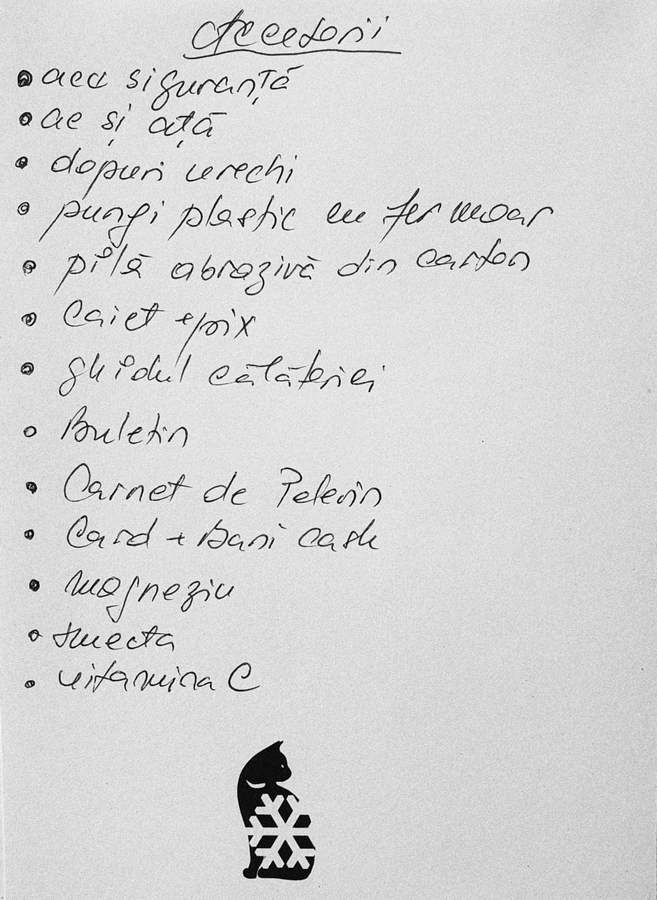 Accesorii
aca siguranță
ac și ață
dopuri urechi
pungi plastic cu fermoar
pilă abrazivă din carton
Caiet + pix
ghidul călătoriei
Buletin
Carnet de Pelerin
Card + Bani cash
magneziu
smecta
vitamina C